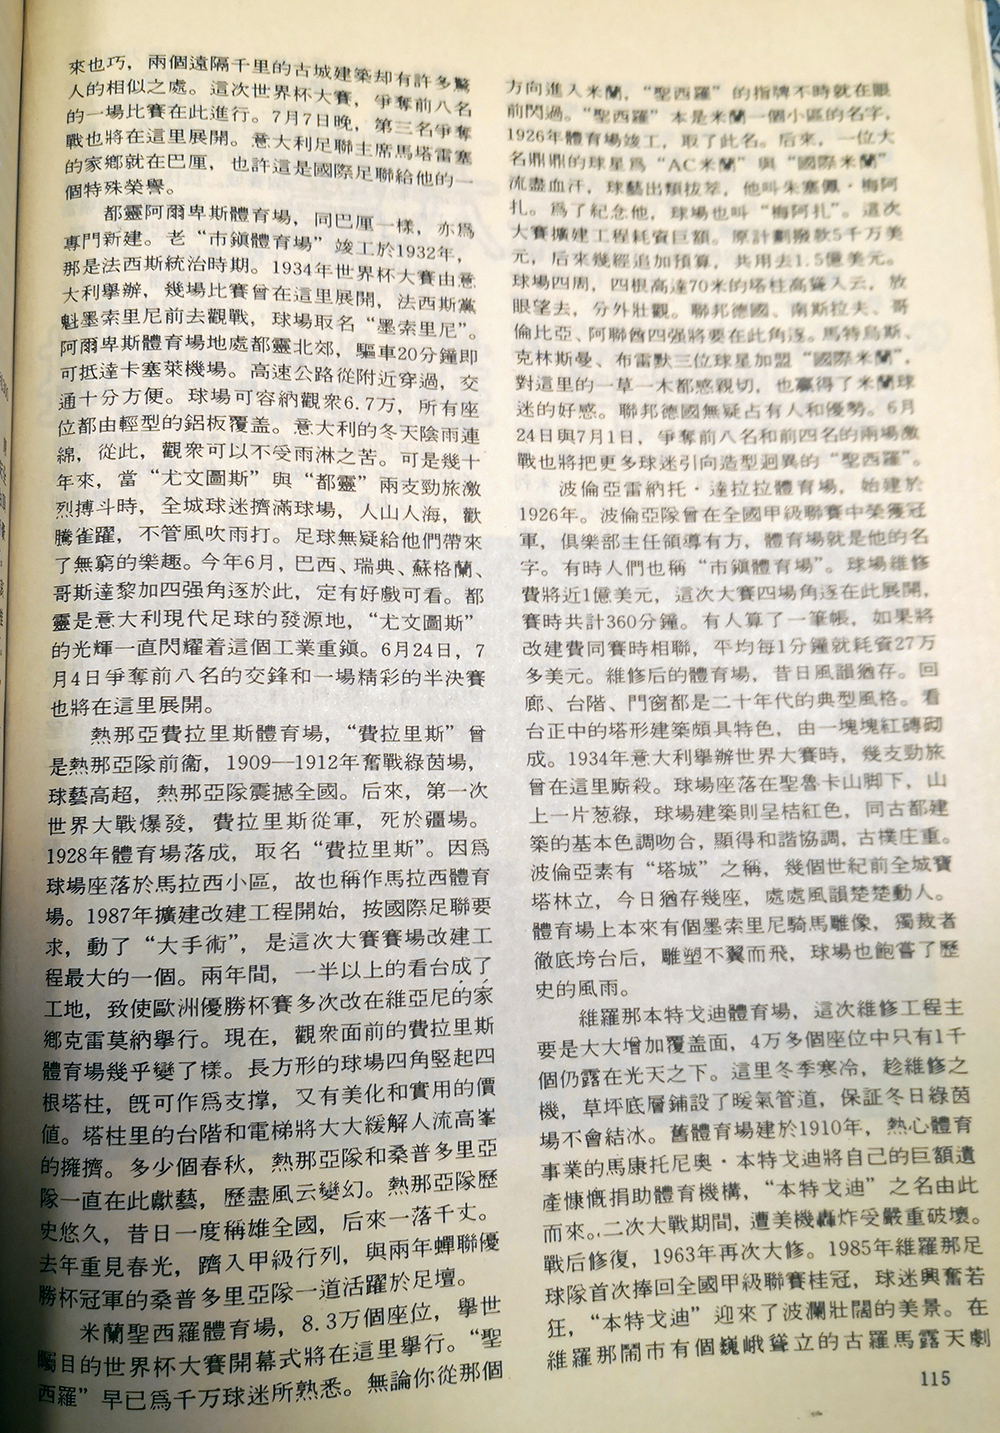 來也巧，兩個遠隔千里的古城建築却有許多驚
人的相似之處。這次世界杯大賽，爭奪前八名
的一場比賽在此進行。7月7日晚，第三名爭奪
戰也將在這里展開。意大利足聯主席馬塔雷塞
的家鄉就在巴厘，也許這是國際足聯給他的一
個特殊榮譽。
都靈阿爾卑斯體育場，同巴厘一樣，亦爲
專門新建。老“市鎮體育場”竣工於1932年，
那是法西斯統治時期。1934年世界杯大賽由意
大利舉辦，幾場比賽曾在這里展開，法西斯黨
魁墨索里尼前去觀戰，球場取名“墨索里尼”。
阿爾卑斯體育場地處都靈北郊，驅車20分鐘即
可抵達卡塞萊機場。高速公路從附近穿過，交
通十分方便。球場可容納觀衆6.7万，所有座
位都由輕型的鋁板覆蓋。意大利的冬天陰雨連
綿，從此，觀衆可以不受雨淋之苦。可是幾十
年來，當“尤文圖斯”與“都靈”兩支勁旅激
烈搏斗時，全城球迷擠滿球場，人山人海，歡
騰雀躍，不管風吹雨打。足球無疑給他們帶來
了無窮的樂趣。今年6月，巴西、瑞典、蘇格蘭、
哥斯達黎加四强角逐於此，定有好戲可看。都
靈是意大利現代足球的發源地，“尤文圖斯”
的光輝一直閃耀着這個工業重鎮。6月24日，7
月4日爭奪前八名的交鋒和一場精彩的半決賽
也將在這里展開。
熱那亞費拉里斯體育場，“費拉里斯”曾
是熱那亞隊前衞，1909—1912年奮戰綠茵場，
球藝高超，熱那亞隊震撼全國。后來，第一次
世界大戰爆發，費拉里斯從軍，死於疆場。
1928年體育場落成，取名“費拉里斯”。因爲
球場座落於馬拉西小區，故也稱作馬拉西體育
場。1987年擴建改建工程開始，按國際足聯要
求，動了“大手術”，是這次大賽賽場改建工
程最大的一個。兩年間，一半以上的看台成了
工地，致使歐洲優勝杯賽多次改在維亞尼的家
鄉克雷莫納舉行。現在，觀衆面前的費拉里斯
體育場幾乎變了樣。長方形的球場四角竪起四
根塔柱，旣可作爲支撑，又有美化和實用的價
値。塔柱里的台階和電梯將大大緩解人流高峯
的擁擠。多少個春秋，熱那亞隊和桑普多里亞
隊一直在此獻藝，歷盡風云變幻。熱那亞隊歷
史悠久，昔日一度稱雄全國，后來一落千丈。
去年重見春光，躋入甲級行列，與兩年蟬聯優
勝杯冠軍的桑普多里亞隊一道活躍於足壇。
米蘭聖西羅體育場，8.3万個座位，擧世
矚目的世界杯大賽開幕式將在這里舉行。“聖
西羅”早已爲千万球迷所熟悉。無論你從那個
方向進入米蘭，“聖西羅”的指牌不時就在眼
前閃過。“聖西羅”本是米蘭一個小區的名字，
1926年體育場竣工，取了此名。后來，一位大
名鼎鼎的球星爲“AC米蘭”與“國際米蘭”
流盡血汗，球藝出類拔萃，他叫朱塞佩·梅阿
扎。爲了紀念他，球場也叫“梅阿扎”。這次
大賽擴建工程耗資巨額。原計劃撥款5千万美
元，后來幾經追加預算，共用去1.5億美元。
球場四周，四根高達70米的塔柱高聳入云，放
眼望去，分外壯觀。聯邦德國、南斯拉夫、哥
倫比亞、阿聯酋四强將要在此角逐。馬特烏斯、
克林斯曼、布雷默三位球星加盟“國際米蘭”，
對這里的一草一木都感親切，也贏得了米蘭球
迷的好感。聯邦德國無疑占有人和優勢。6月
24日與7月1日，爭奪前八名和前四名的兩場激
戰也將把更多球迷引向造型迥異的“聖西羅”。
波倫亞雷納托·達拉拉體育場，始建於
1926年。波倫亞隊曾在全國甲級聯賽中榮獲冠
軍，俱樂部主任領導有方，體育場就是他的名
字。有時人們也稱“市鎮體育場”。球場維修
費將近1億美元，這次大賽四場角逐在此展開，
賽時共計360分鐘。有人算了一筆帳，如果將
改建費同賽時相聯，平均每1分鐘就耗資27万
多美元。維修后的體育場，昔日風韻猶存。回
廊、台階、門窗都是二十年代的典型風格。看
台正中的塔形建築頗具特色，由一塊塊紅磚砌
成。1934年意大利舉辦世界大賽時，幾支勁旅
曾在這里廝殺。球場座落在聖魯卡山脚下，山
上一片葱綠，球場建築則呈桔紅色，同古都建
築的基本色調吻合，顯得和諧協調，古樸庄重。
波倫亞素有“塔城”之稱，幾個世紀前全城寶
塔林立，今日猶存幾座，處處風韻楚楚動人。
體育場上本來有個墨索里尼騎馬雕像，獨裁者
徹底垮台后，雕塑不翼而飛，球場也飽嘗了歷
史的風雨。
維羅那本特戈迪體育場，這次維修工程主
要是大大增加覆蓋面，4万多個座位中只有1千
個仍露在光天之下。這里冬季寒冷，趁維修之
機，草坪底層鋪設了暖氣管道，保証冬日綠茵
場不會結冰。舊體育場建於1910年，熱心體育
事業的馬康托尼奥·本特戈迪將自己的巨額遺
產慷慨捐助體育機構，“本特戈迪”之名由此
而來。二次大戰期間，遭美機轟炸受嚴重破壞。
戰后修復，1963年再次大修。1985年維羅那足
球隊首次捧回全國甲級聯賽桂冠，球迷興奮若
狂，“本特戈迪”迎來了波瀾壯闊的美景。在
維羅那鬧市有個巍峨聳立的古羅馬露天劇
115